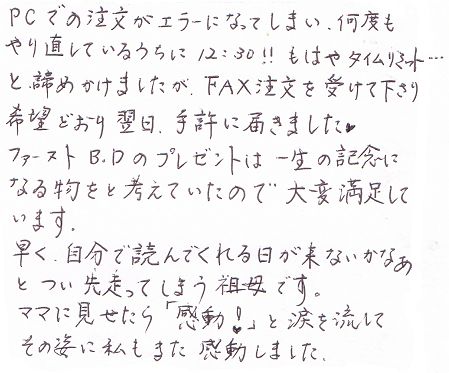 PCでの注文がエラーになってしまい、何度も
やり直しているうちに 12:30!! もはやタイムリミット…
と、諦めかけましたが、FAX注文を受けて下さり
希望どおり翌日、手許に届きました♥
ファースト B.Dのプレゼントは一生の記念に
なる物をと考えていたので大変満足して
います。
早く、自分で読んでくれる日が来ないかなぁ
とつい先走ってしまう祖母です。
ママに見せたら「感動!」と涙を流して
その姿に私もまた感動しました。